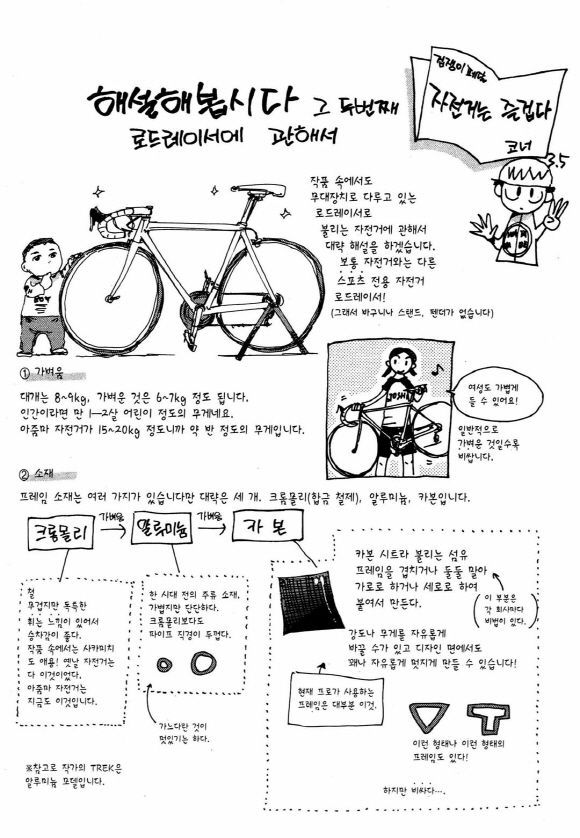 해설해봅시다 그 두번째
로드레이서에 관해서
겁쟁이 페달
자전거는 즐겁다
코너
3.5
작품 속에서도
무대장치로 다루고 있는
로드레이서로
불리는 자전거에 관해서
대략 해설을 하겠습니다.
보통 자전거와는 다른
스포츠 전용 자전거
로드레이서!
(그래서 바구니나 스탠드, 펜더가 없습니다)
BOY
① 가벼움
대개는 8~9kg, 가벼운 것은 6~7kg 정도 됩니다.
인간이라면 만 1-2살 어린이 정도의 무게네요.
아줌마 자전거가 15~20kg 정도니까 약 반 정도의 무게입니다.
JOSHI
여성도 가볍게
들 수 있어요!
일반적으로
가벼운 것일수록
비쌉니다.
② 소재
프레임 소재는 여러 가지가 있습니다만 대략은 세 개. 크롬몰리(합금 철제), 알루미늄, 카본입니다.
크롬몰리 가벼움 알루미늄 가벼움 카본
철
무겁지만 독특한
휘는 느낌이 있어서
승차감이 좋다.
작품 속에서는 사카미치
도 애용! 옛날 자전거는
다 이것이었다.
아줌마 자전거는
지금도 이것입니다.
한 시대 전의 주류 소재.
가볍지만 단단하다.
크롬몰리보다도
파이프 직경이 두껍다.
가느다란 것이
멋있기는 하다.
카본 시트라 불리는 섬유
프레임을 겹치거나 둘둘 말아
가로로 하거나 세로로 하여
붙여서 만든다.
이 부분은
각 회사마다
비법이 있다.
강도나 무게를 자유롭게
바꿀 수가 있고 디자인 면에서도
꽤나 자유롭게 멋지게 만들 수 있습니다!
현재 프로가 사용하는
프레임은 대부분 이것.
이런 형태나 이런 형태의
프레임도 있다!
하지만 비싸다....
※참고로 작가의 TREK은
알루미늄 모델입니다.